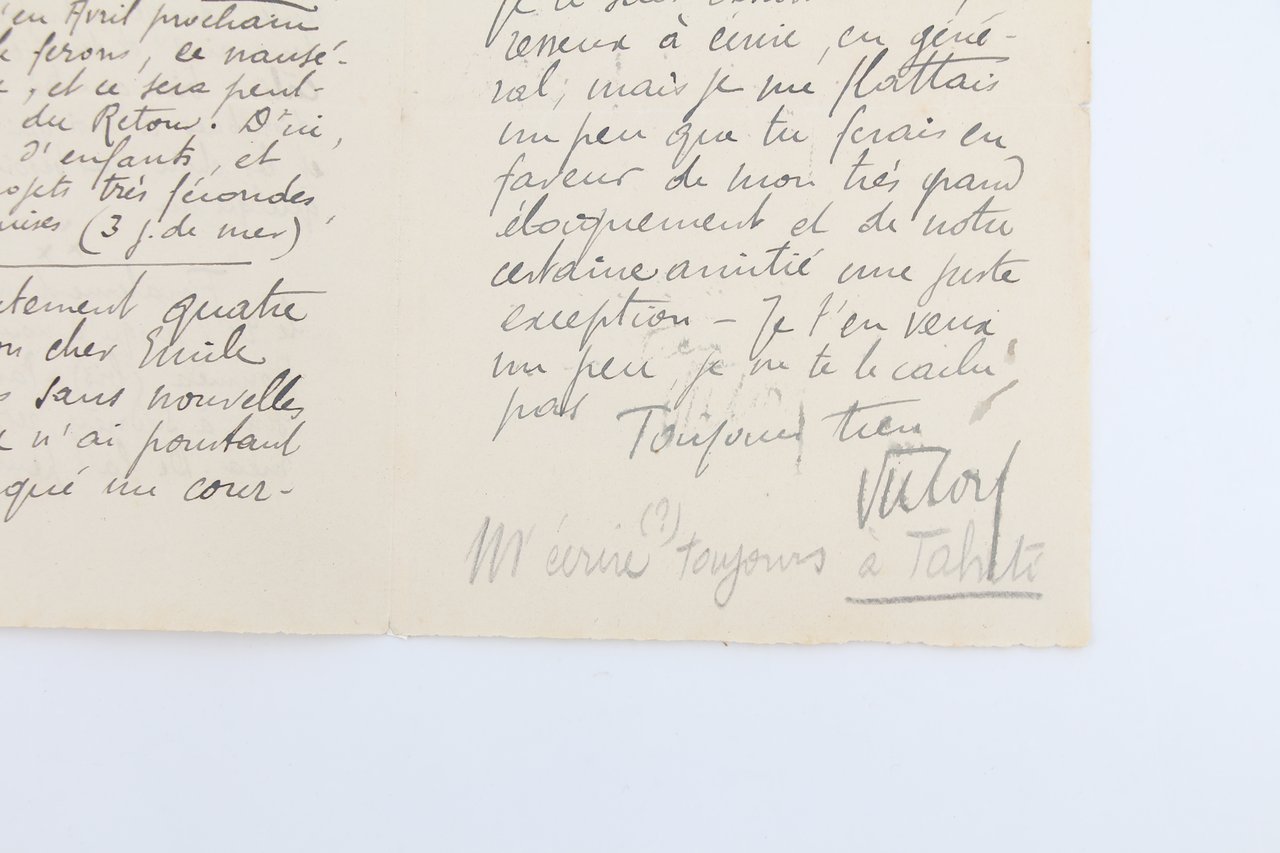 'en Avril prochain
ferons, ce nausé-
, et ce sera peut-
du Retour. D'ici,
d'enfants, et
ojets très fécondes
mises (3 j. de mer)
tement quatre
on cher Emile
s sans nouvelles
n'ai pourtant
qué un cour-
je te sais
resseux à écrire, en géné-
ral, mais je me flattais
un peu que tu ferais en
faveur de mon très grand
éloignement et de notre
certaine amitié une juste
exception — Je t'en veux
un peu, je ne te le cache
pas
Toujours tien
Victor
M'écrire (?) toujours à Tahiti